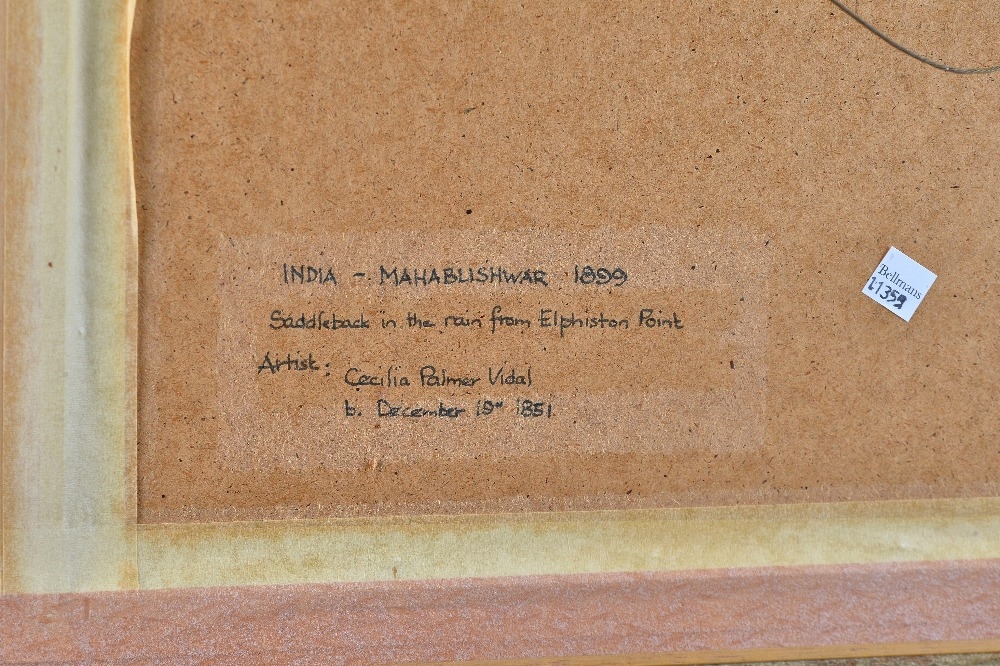 INDIA - MAHABLISHWAR 1899
Saddleback in the rain from Elphiston Point
Artist:
Cecilia Palmer Vidal
b. December 19th 1851
Bellmans